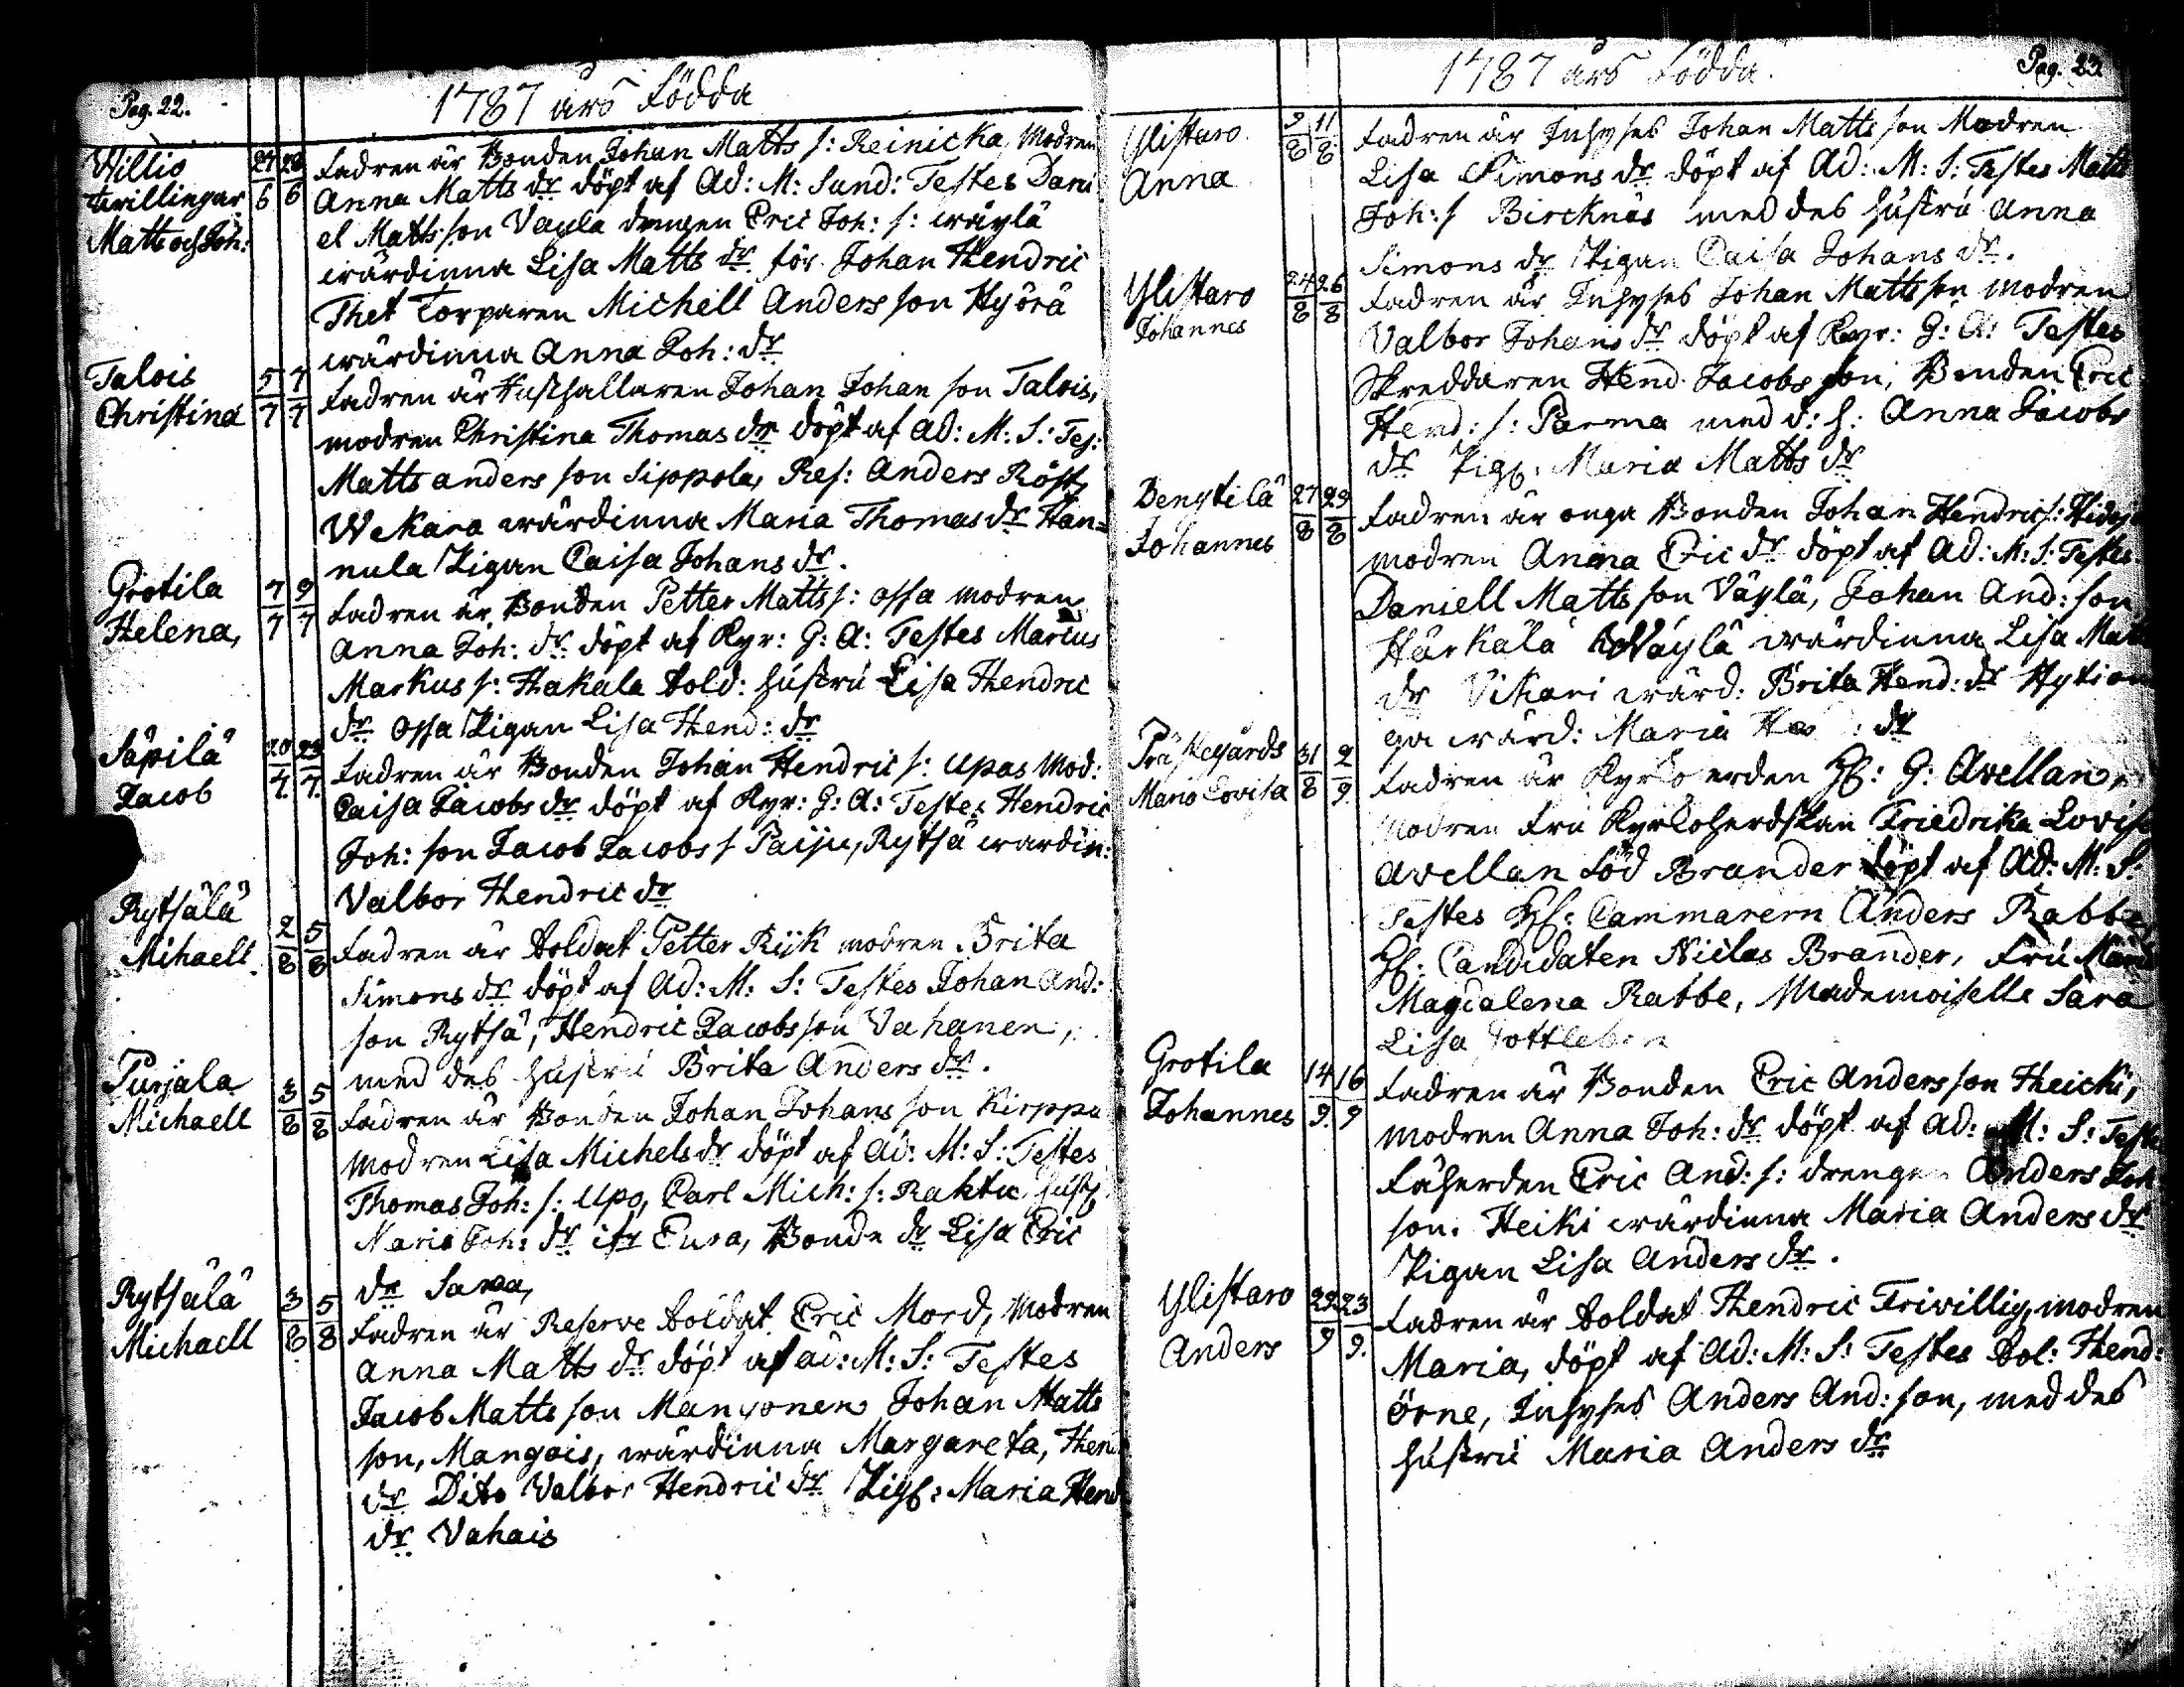 Pag. 22.
1787 års Födda
Willio 27/6 28/6 Fadren är Bonden Johan Matts s: Reinicka, Modren
tvillingar Anna Matts dr döpt af Ad: M: Sund: Testes Dani
Matts och Joh: el Matts son Vayla drengen Eric Joh: s: wäylä
wärdinna Lisa Matts dr för Johan Hendric
Thet Torparen Michell Anders son Hyörä
wärdinna Anna Joh: dr
Talois 5/7 7/7 Fadren är Hushallaren Johan Johan son Talois,
Christina modren Christina Thomas dr döpt af Ad: M: S: Tes:
Matts anders son Sippola, Res: Anders Röst,
Wekara wärdinna Maria Thomas dr Han=
nula Pigan Caisa Johans dr.
Grotila 7/7 9/7 Fadren är Bonden Petter Matts s: Ossa modren
Helena, Anna Joh: dr döpt af Kyr: G: A: Testes Marcus
Markus s: Hakala Sold: hustru Lisa Hendric
dr Ossa Pigan Lisa Hend: dr
Säpilä 20/7. 23/7. Fadren är Bonden Johan Hendric s: Upas Mod:
Jacob Caisa Jacobs dr döpt af Kyr: G: A: Testes Hendric
Joh: son Jacob Jacobs s Paiju, Rytsä wardin:
Valbor Hendric dr
Rytsälä 2/8 5/8 Fadren är Soldat Petter Rijk modren Brita
Mihaell. Simons dr döpt af Ad: M: S: Testes Johan And:
son Rytsä, Hendric Jacobs son Vahanen,
med des hustru Brita Anders dr.
Purjala 3/8 5/8 Fadren är Bonden Johan Johans son Kirppu
Michaell Modren Lisa Michels dr döpt af Ad: M: S: Testes
Thomas Joh: s: Upo, Carl Mich: s: Raktu, hust
Maria Joh: dr ifr Eura, Bonde dr Lisa Eric
dr Sawa,
Rytsälä 3/8 5/8 Fadren är Reserve Soldat Eric Mord, Modren
Michaell Anna Matts dr döpt af ad: M: S: Testes
Jacob Matts son Mangonen Johan Matts
son, Mangois, wärdinna Margareta, Hen
dr Dito Valbor Hendric dr Pig: Maria Hend
dr Vahais
Pag. 23.
1787 års Födda.
Ylistaro 9/8 11/8 Fadren är Inhyses Johan Matts son Modren
Anna Lisa Simons dr döpt af Ad: M: S: Testes Matts
Joh: s Bircknäs med des hustru Anna
Simons dr Pigan Caisa Johans dr.
Ylistaro 24/8 26/8 Fadren är Inhyses Johan Matts son modren
Johannes Valbor Johans dr döpt af Kyr: G: A: Testes
Skreddaren Hend. Jacobs son, Bonden Eric
Hend: s: Parma med d: h: Anna Jacobs
dr Pig: Maria Matts dr
Benstilä 27/8 29/8 Fadren är unga Bonden Johan Hendric s:
Johannes modren Anna Eric dr döpt af Ad: M: S: Testes
Daniell Matts son Väylä, Johan And: son
Härkälä Wäylä wärdinna Lisa Mat
dr Vikari wärd: Brita Hend: dr
wärd: Maria : dr
Prästegårds 31/8 2/9. Fadren är Kyrkoerden H: G: Avellan,
Maria Lovisa Modren Fru Kyrkoherdskan Friedrika Lovisa
Avellan Född Brander döpt af Ad: M: S:
Testes H: Cammarern Anders Rabbe
H: Candidaten Niclas Brander, Fru Maria
Magdalena Rabbe, Mademoiselle Sara
Lisa Gottleben
Grotila 14/9. 16/9 Fadren är Bonden Eric Anders son Heicki,
Johannes Modren Anna Joh: dr döpt af Ad: M: S: Teste
Fäherden Eric And: s: drengen Anders Joh
son. Heiki wärdinna Maria Anders dr
Pigan Lisa Anders dr.
Ylistaro 22/9 23/9. Fadren är Soldat Hendric Frivillig, modren
Anders Maria, döpt af Ad: M: S: Testes Sol: Hend:
Örne, Inhyses Anders And: son, med des
hustru Maria Anders dr